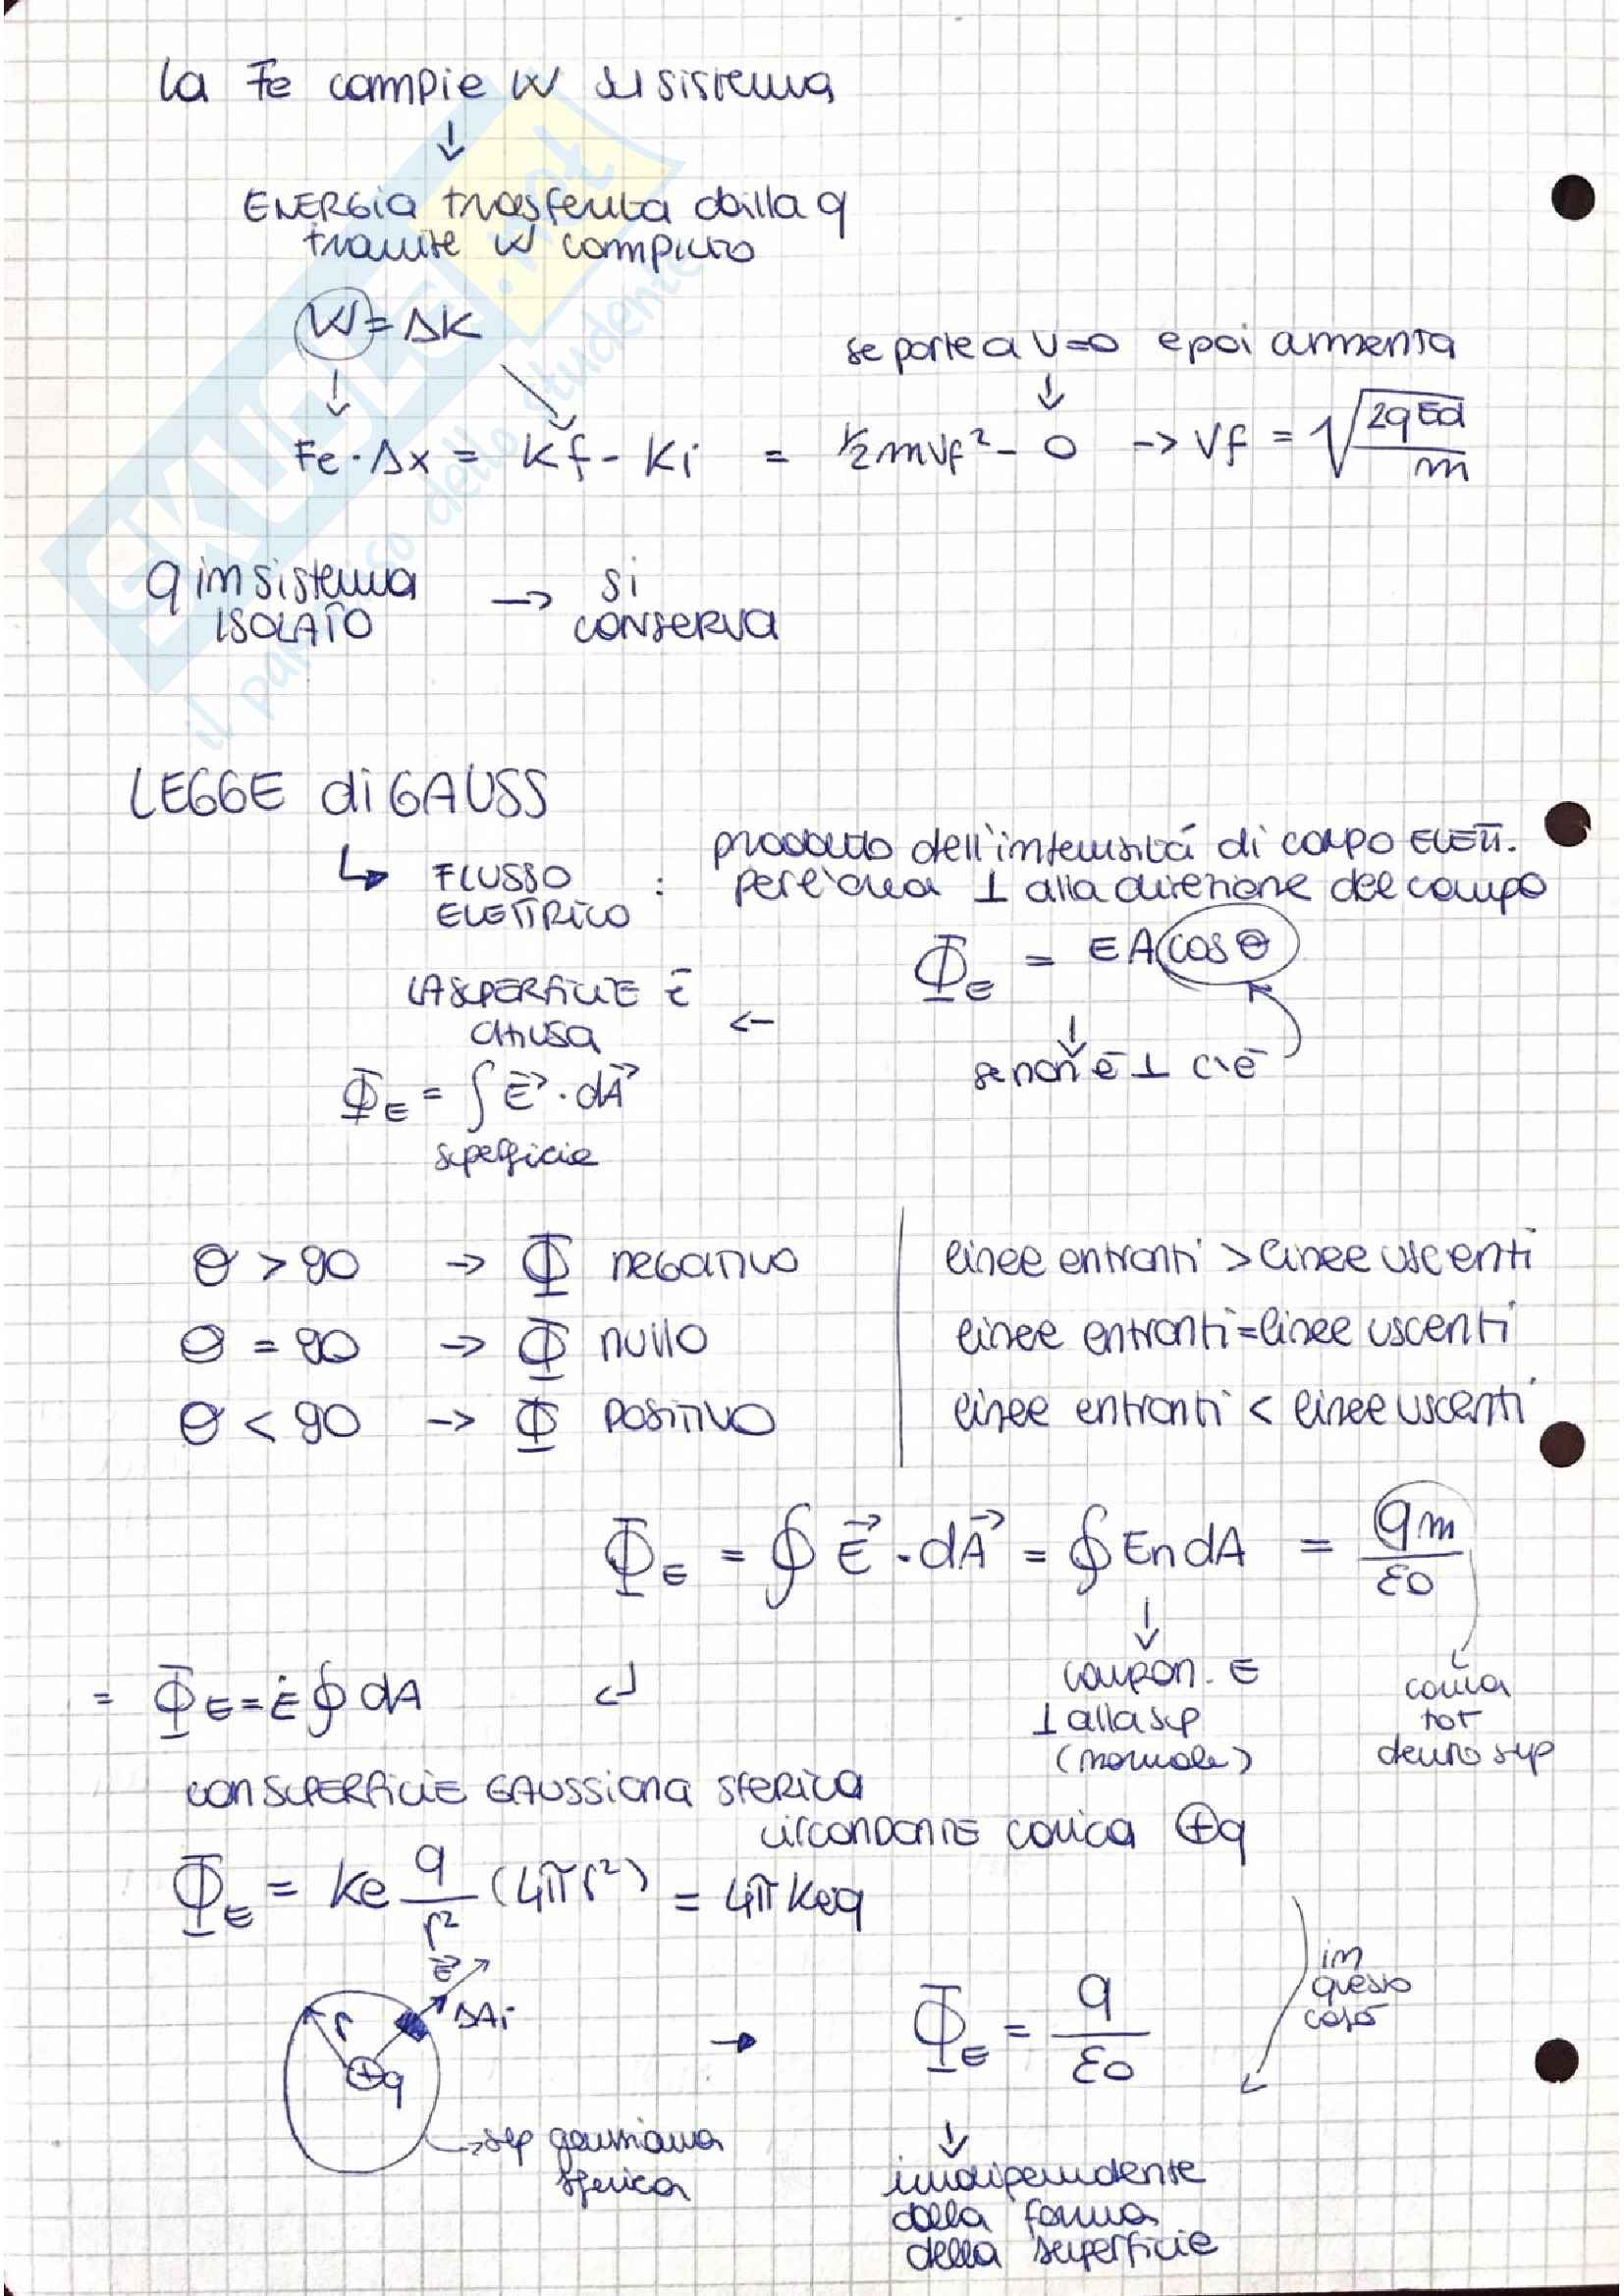 la Fe compie W sul sistema
↓
ENERGIA trasferita dalla q
tramite W compiuto
W = ΔK
se parte a v=0 e poi aumenta
Fe · Δx = Kf - Ki = 1/2 m vf² - 0 → vf = √(2qEd/m)
q in sistema ISOLATO → si conserva
LEGGE di GAUSS
↳ FLUSSO ELETTRICO : prodotto dell'intensitá di campo ELETT.
per l'area ⊥ alla direzione del campo
Φ_E = E A cos θ
se non è ⊥ c'è
←
LA SUPERFICIE è
CHIUSA
Φ_E = ∫ E⃗ · dA⃗
superficie
θ > 90 → Φ negativo | linee entranti > linee uscenti
θ = 90 → Φ nullo | linee entranti = linee uscenti
θ < 90 → Φ positivo | linee entranti < linee uscenti
Φ_E = ∮ E⃗ · dA⃗ = ∮ En dA = qin/ε0
compon. E
⊥ alla sup
(normale)
carica
tot
dentro sup
= Φ_E = E ∮ dA
con SUPERFICIE GAUSSIANA SFERICA
circondante carica ⊕q
Φ_E = ke q/r² (4πr²) = 4π ke q
in
questo
caso
E⃗
ΔAi
r
⊕q
→ sup gaussiana
sferica
→ Φ_E = q/ε0
↓
indipendente
dalla forma
della superficie
SKUOLA.net
il paradiso dello studente